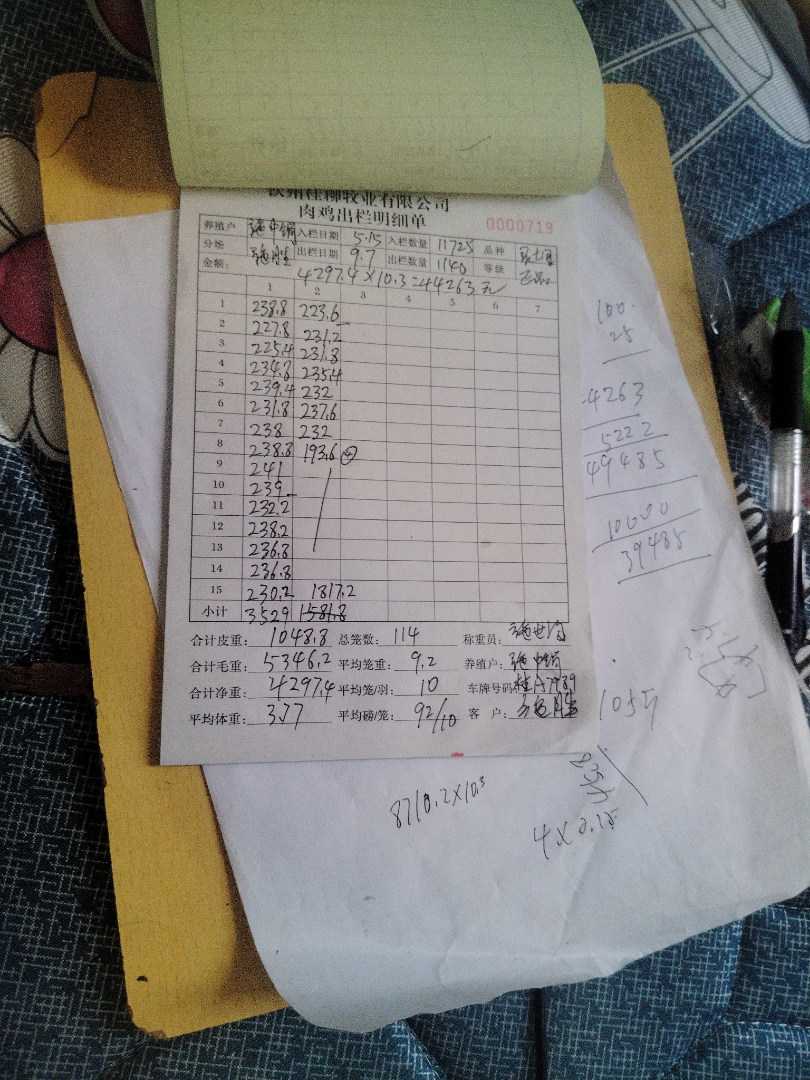 钦州桂柳牧业有限公司
肉鸡出栏明细单 0000719
养殖户 入栏日期 5.15 入栏数量 11725 品种
分场 出栏日期 9.7 出栏数量 1140 等级 正品
金额: 4297.4×10.3=44263元
1 2 3 4 5 6 7
1 238.8 223.6
2 227.8 231.2
3 225.4 231.8
4 234.8 235.4
5 239.4 232
6 231.8 237.6
7 238 232
8 238.8 193.6 ④
9 241
10 239
11 232.2
12 238.2
13 236.8
14 236.8
15 230.2 1817.2
小计 3529 1581.8
合计皮重: 1048.8 总笼数: 114 称重员:
合计毛重: 5346.2 平均笼重: 9.2 养殖户:
合计净重: 4297.4 平均笼/羽: 10 车牌号码: 桂A7989
平均体重: 3.77 平均磅/笼: 92/10 客户:
100.
25
44263
5222
49485
10000
39485
8710.2×10.3